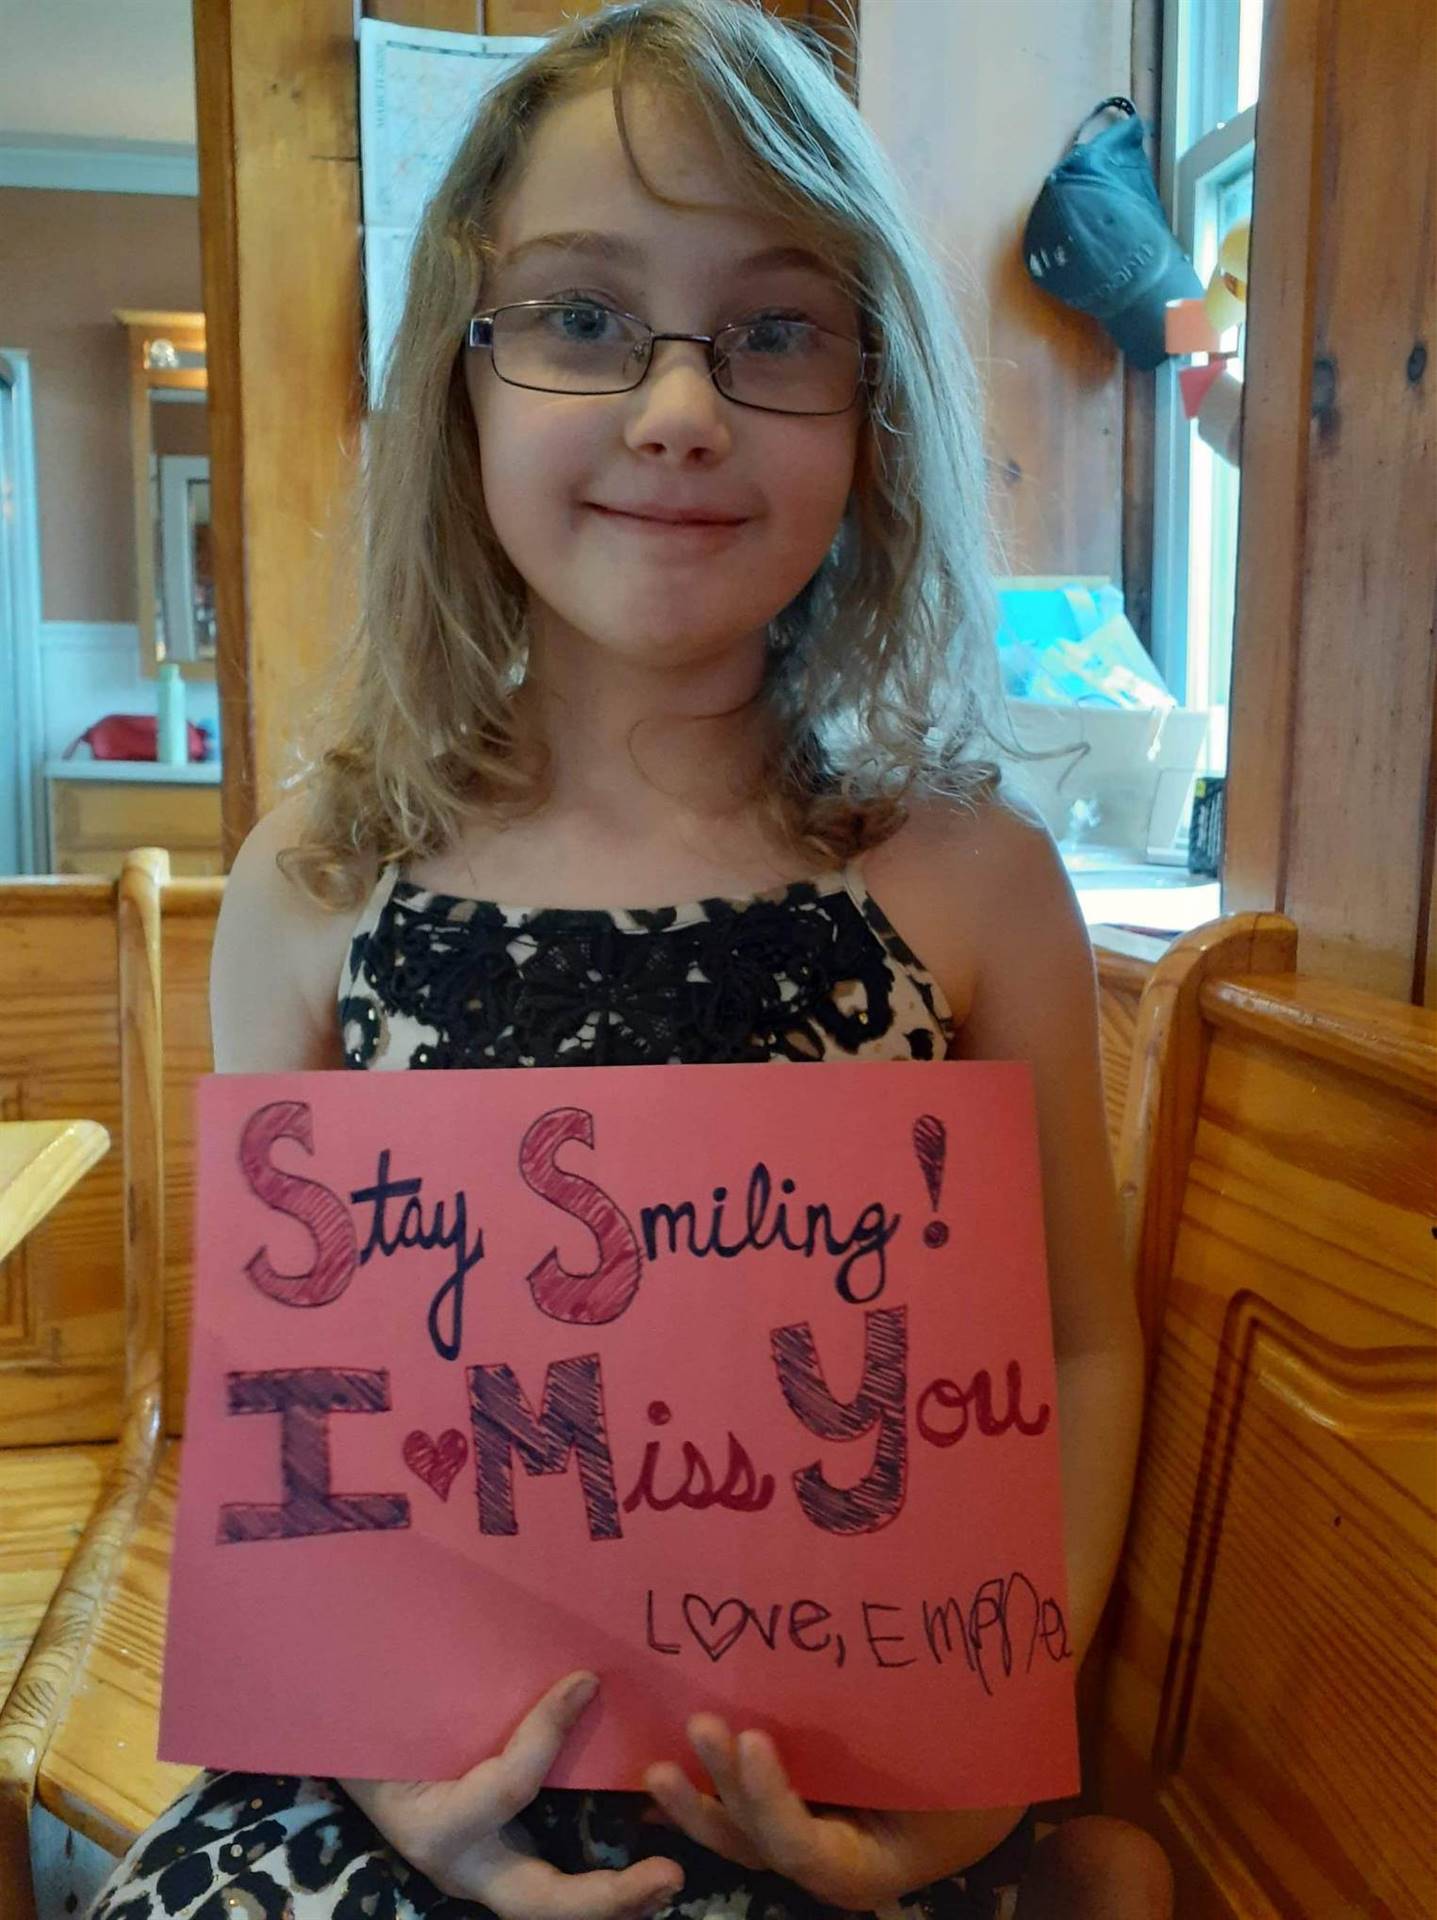 MARCH
Stay Smiling!
I Miss You
Love,